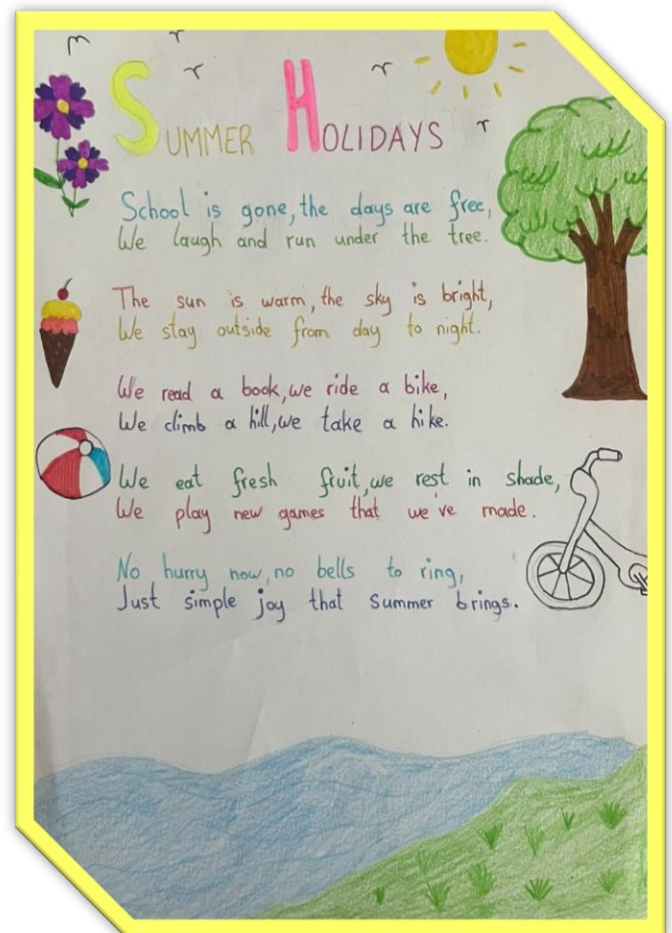 SUMMER HOLIDAYS
School is gone, the days are free,
We laugh and run under the tree.
The sun is warm, the sky is bright,
We stay outside from day to night.
We read a book, we ride a bike,
We climb a hill, we take a hike.
We eat fresh fruit, we rest in shade,
We play new games that we've made.
No hurry now, no bells to ring,
Just simple joy that Summer brings.